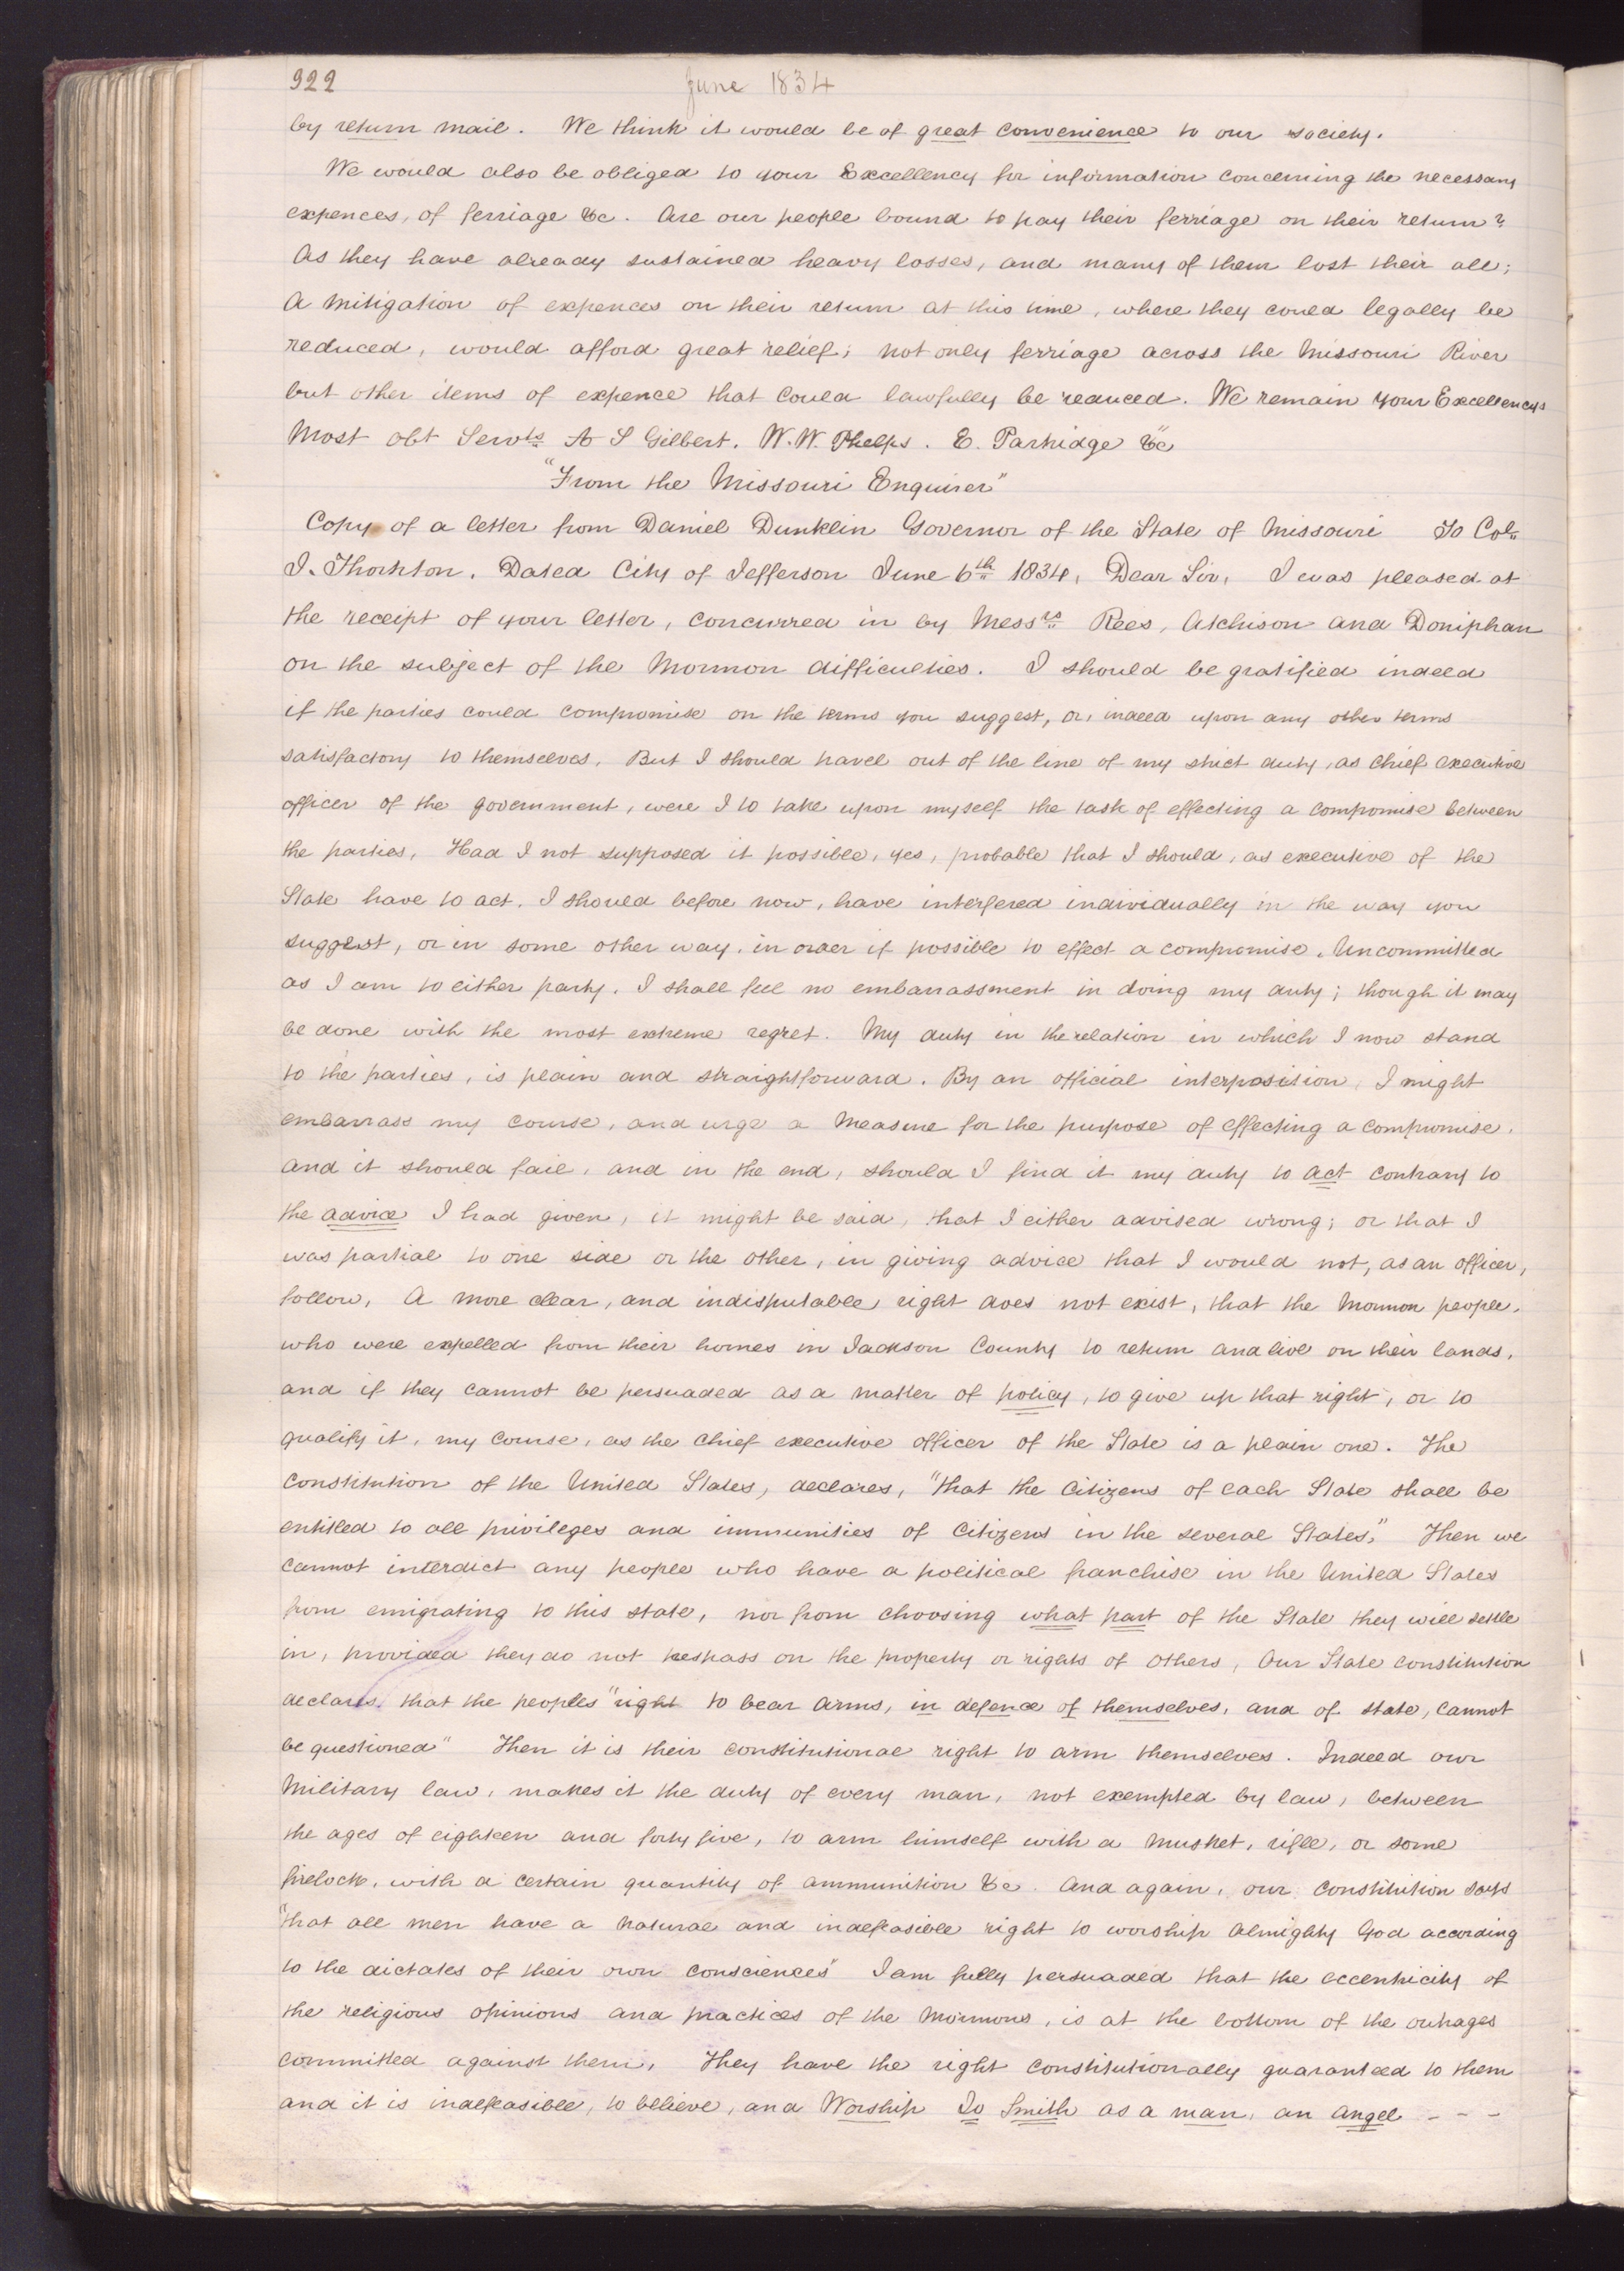 922
June 1834
by return mail. We think it would be of great convenience to our society.
We would also be obliged to your Excellency for information concerning the necessary
expences, of ferriage &c. Are our people bound to pay their ferriage on their return?
As they have already sustained heavy losses, and many of them lost their all;
A mitigation of expences on their return at this time, where they could legally be
reduced, would afford great relief; not only ferriage across the Missouri River
but other items of expence that could lawfully be reduced. We remain your Excellencys
Most obt Servts A S Gilbert. W. W. Phelps. E. Partridge &c"
"From the Missouri Enquirer"
Copy of a letter from Daniel Dunklin Governor of the State of Missouri To Col
J. Thornton. Dated City of Jefferson June 6th 1834, Dear Sir, I was pleased at
the receipt of your letter, concurred in by Messrs Rees, Atchison and Doniphan
on the subject of the Mormon difficulties. I should be gratified indeed
if the parties could compromise on the terms you suggest, or, indeed upon any other terms
satisfactory to themselves. But I should travel out of the line of my strict duty, as chief executive
officer of the government, were I to take upon myself the task of effecting a compromise between
the parties, Had I not supposed it possible, yes, probable that I should, as executive of the
State have to act. I should before now, have interfered individually in the way you
suggest, or in some other way, in order if possible to effect a compromise. Uncommitted
as I am to either party. I shall feel no embarrassment in doing my duty; though it may
be done with the most extreme regret. My duty in the relation in which I now stand
to the parties, is plain and straightforward. By an official interposition, I might
embarrass my course, and urge a measure for the purpose of effecting a compromise.
and it should fail, and in the end, should I find it my duty to act contrary to
the advice I had given, it might be said, that I either advised wrong; or that I
was partial to one side or the other, in giving advice that I would not, as an officer,
follow, A more clear, and indisputable right does not exist, that the Mormon people,
who were expelled from their homes in Jackson County to return and live on their lands,
and if they cannot be persuaded as a matter of policy, to give up that right, or to
qualify it, my course, as the chief executive officer of the State is a plain one. The
constitution of the United States, declares, "that the Citizens of each State shall be
entitled to all privileges and immunities of Citizens in the several States," Then we
cannot interdict any people who have a political franchise in the United States
from emigrating to this state, nor from choosing what part of the State they will settle
in, provided they do not trespass on the property or rights of others, Our State constitution
declares that the peoples "right to bear arms, in defence of themselves, and of state, cannot
be questioned" Then it is their constitutional right to arm themselves. Indeed our
Military law, makes it the duty of every man, not exempted by law, between
the ages of eighteen and forty five, to arm himself with a musket, rifle, or some
firelock, with a certain quantity of ammunition &c. And again, our constitution says
"that all men have a natural and indefeasible right to worship Almighty God according
to the dictates of their own consciences" I am fully persuaded that the eccentricity of
the religious opinions and practices of the Mormons, is at the bottom of the outrages
committed against them, They have the right constitutionally guaranteed to them
and it is indefeasible, to believe, and Worship Jo Smith as a man, an angel - - -